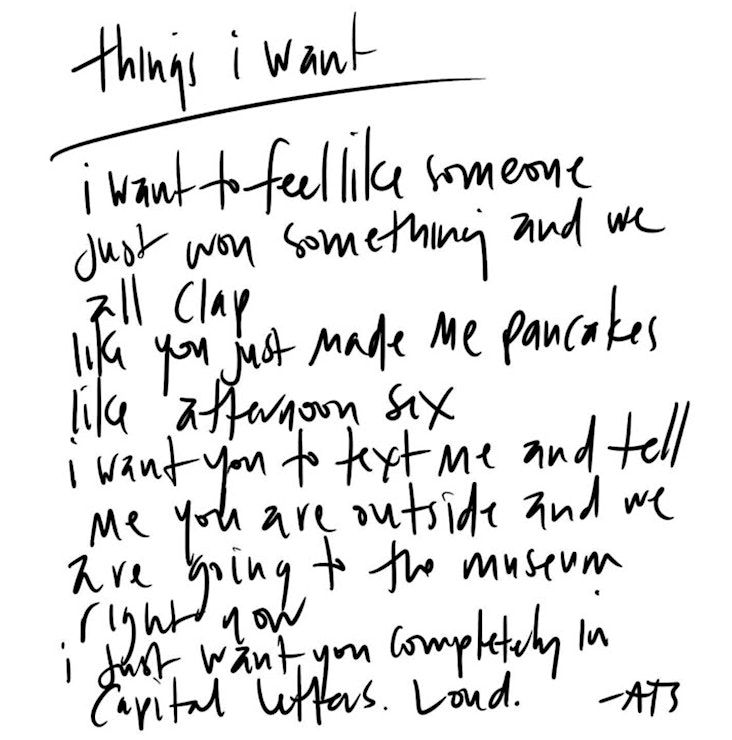 things i want
i want to feel like someone
just won something and we
all clap
like you just made me pancakes
like afternoon sex
i want you to text me and tell
me you are outside and we
are going to the museum
right now
i just want you completely in
Capital letters. Loud. -ATB